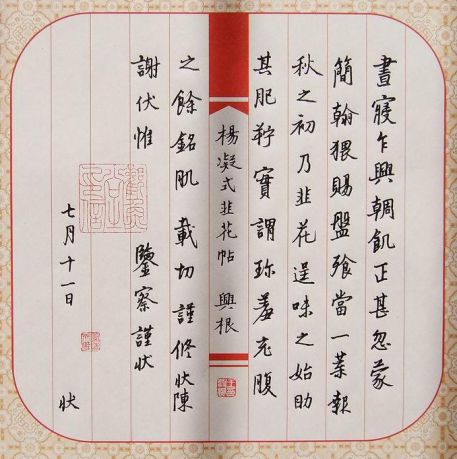 晝寢乍興輖飢正甚忽蒙
簡翰猥賜盤飧當一葉報
秋之初乃韭花逞味之始助
其肥羜實謂珍羞充腹
楊凝式韭花帖 興根
之餘銘肌載切謹修狀陳
謝伏惟 鑒察謹狀
七月十一日 狀